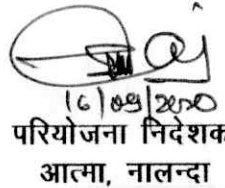 16/09/2020
परियोजना निदेशक
आत्मा, नालन्दा